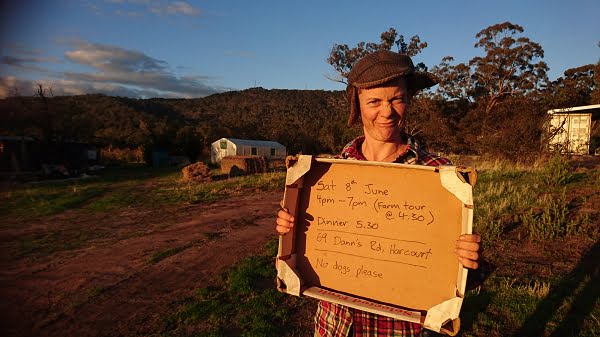 Sat 8th June
4pm - 7pm (Farm tour
@ 4.30)
Dinner 5.30
69 Dann's Rd, Harcourt
No dogs please